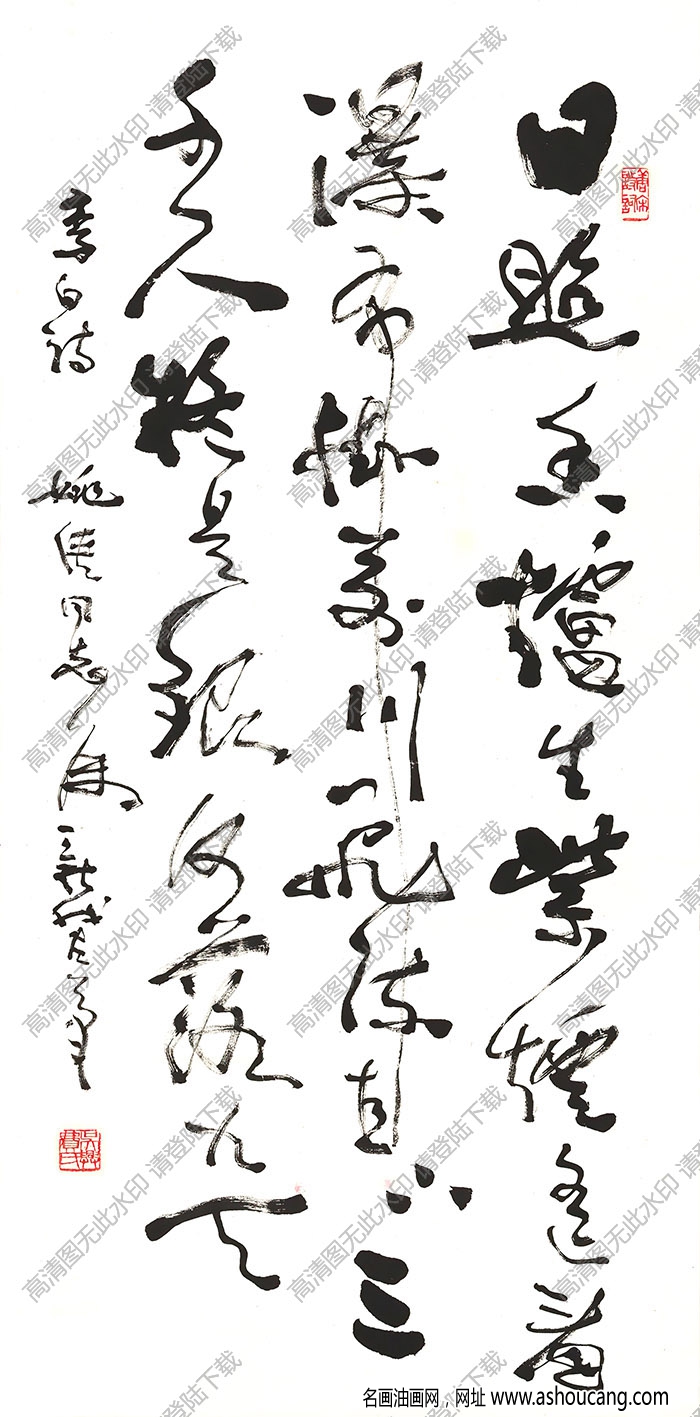 日照香爐生紫煙遙看
瀑布掛前川飛流直下三
千尺疑是銀河落九天
李白詩
同志
新我左筆
高清图无此水印 请登陆下载
名画油画网，网址 www.ashoucang.com